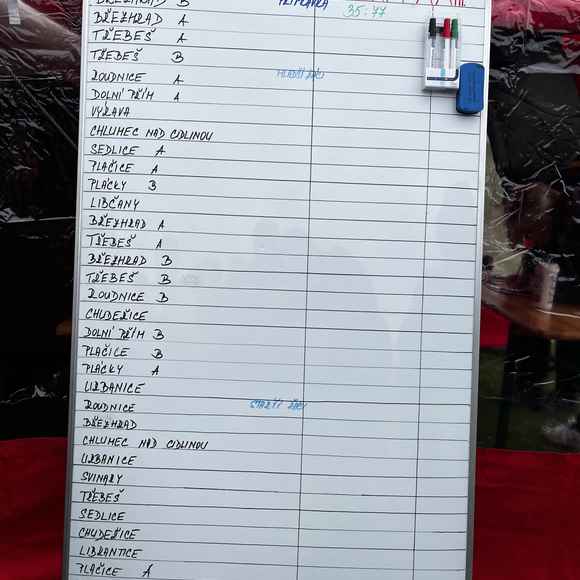 BŘEZHRAD B PŘÍPRAVKA
BŘEZHRAD A 35:77
TŘEBEŠ A
TŘEBEŠ B
ROUDNICE A MLADŠÍ ŽÁCI
DOLNÍ PŘÍM A
VÝRAVA
CHLUMEC NAD CIDLINOU
SEDLICE A
PLAČICE A
PLÁCKY B
LIBČANY
BŘEZHRAD A
TŘEBEŠ A
BŘEZHRAD B
TŘEBEŠ B
ROUDNICE B
CHUDEŘICE
DOLNÍ PŘÍM B
PLAČICE B
PLÁCKY A
URBANICE
ROUDNICE STARŠÍ ŽÁCI
BŘEZHRAD
CHLUMEC NAD CIDLINOU
URBANICE
SVINARY
TŘEBEŠ
SEDLICE
CHUDEŘICE
LIBRANTICE
PLAČICE A